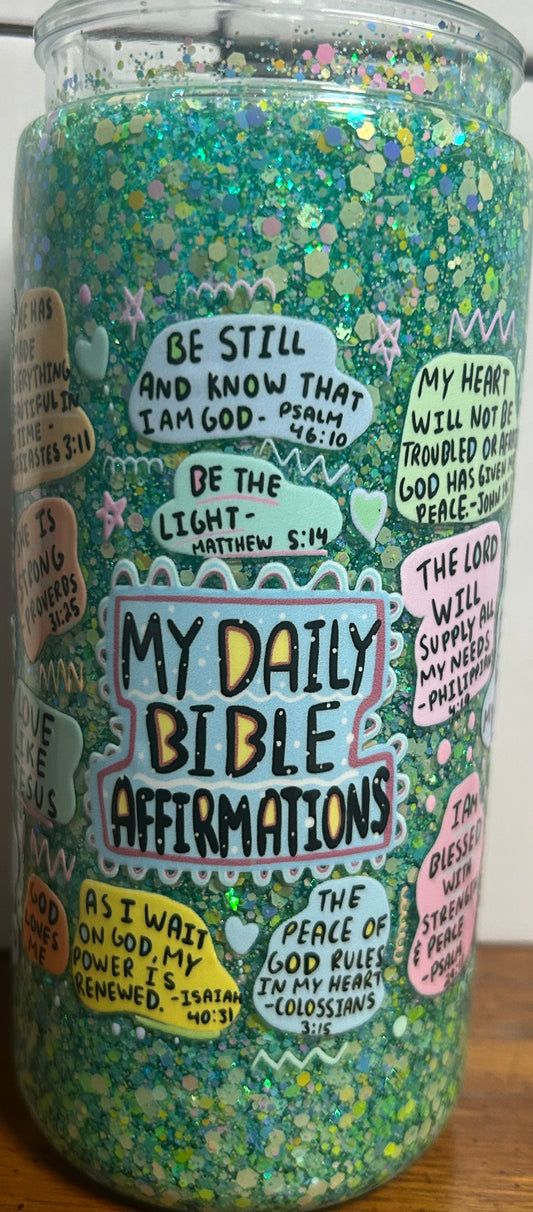 HAS
MADE
EVERYTHING
BEAUTIFUL IN
TIME -
3:11
BE STILL
AND KNOW THAT
I AM GOD- PSALM
46:10
MY HEART
WILL NOT BE
TROUBLED OR
GOD HAS GIVEN
PEACE.-JOHN
BE THE
LIGHT-
MATTHEW 5:14
SHE IS
STRONG
PROVERBS
31:25
THE LORD
WILL
SUPPLY ALL
MY NEEDS
-PHILIPPIANS
4:19
MY DAILY
BIBLE
AFFIRMATIONS
LOVE
LIKE
JESUS
I AM
BLESSED
WITH
STRENGTH
& PEACE
-PSALM
GOD
LOVES
ME
AS I WAIT
ON GOD, MY
POWER IS
RENEWED. -ISAIAH
40:31
THE
PEACE OF
GOD RULES
IN MY HEART
-COLOSSIANS
3:15